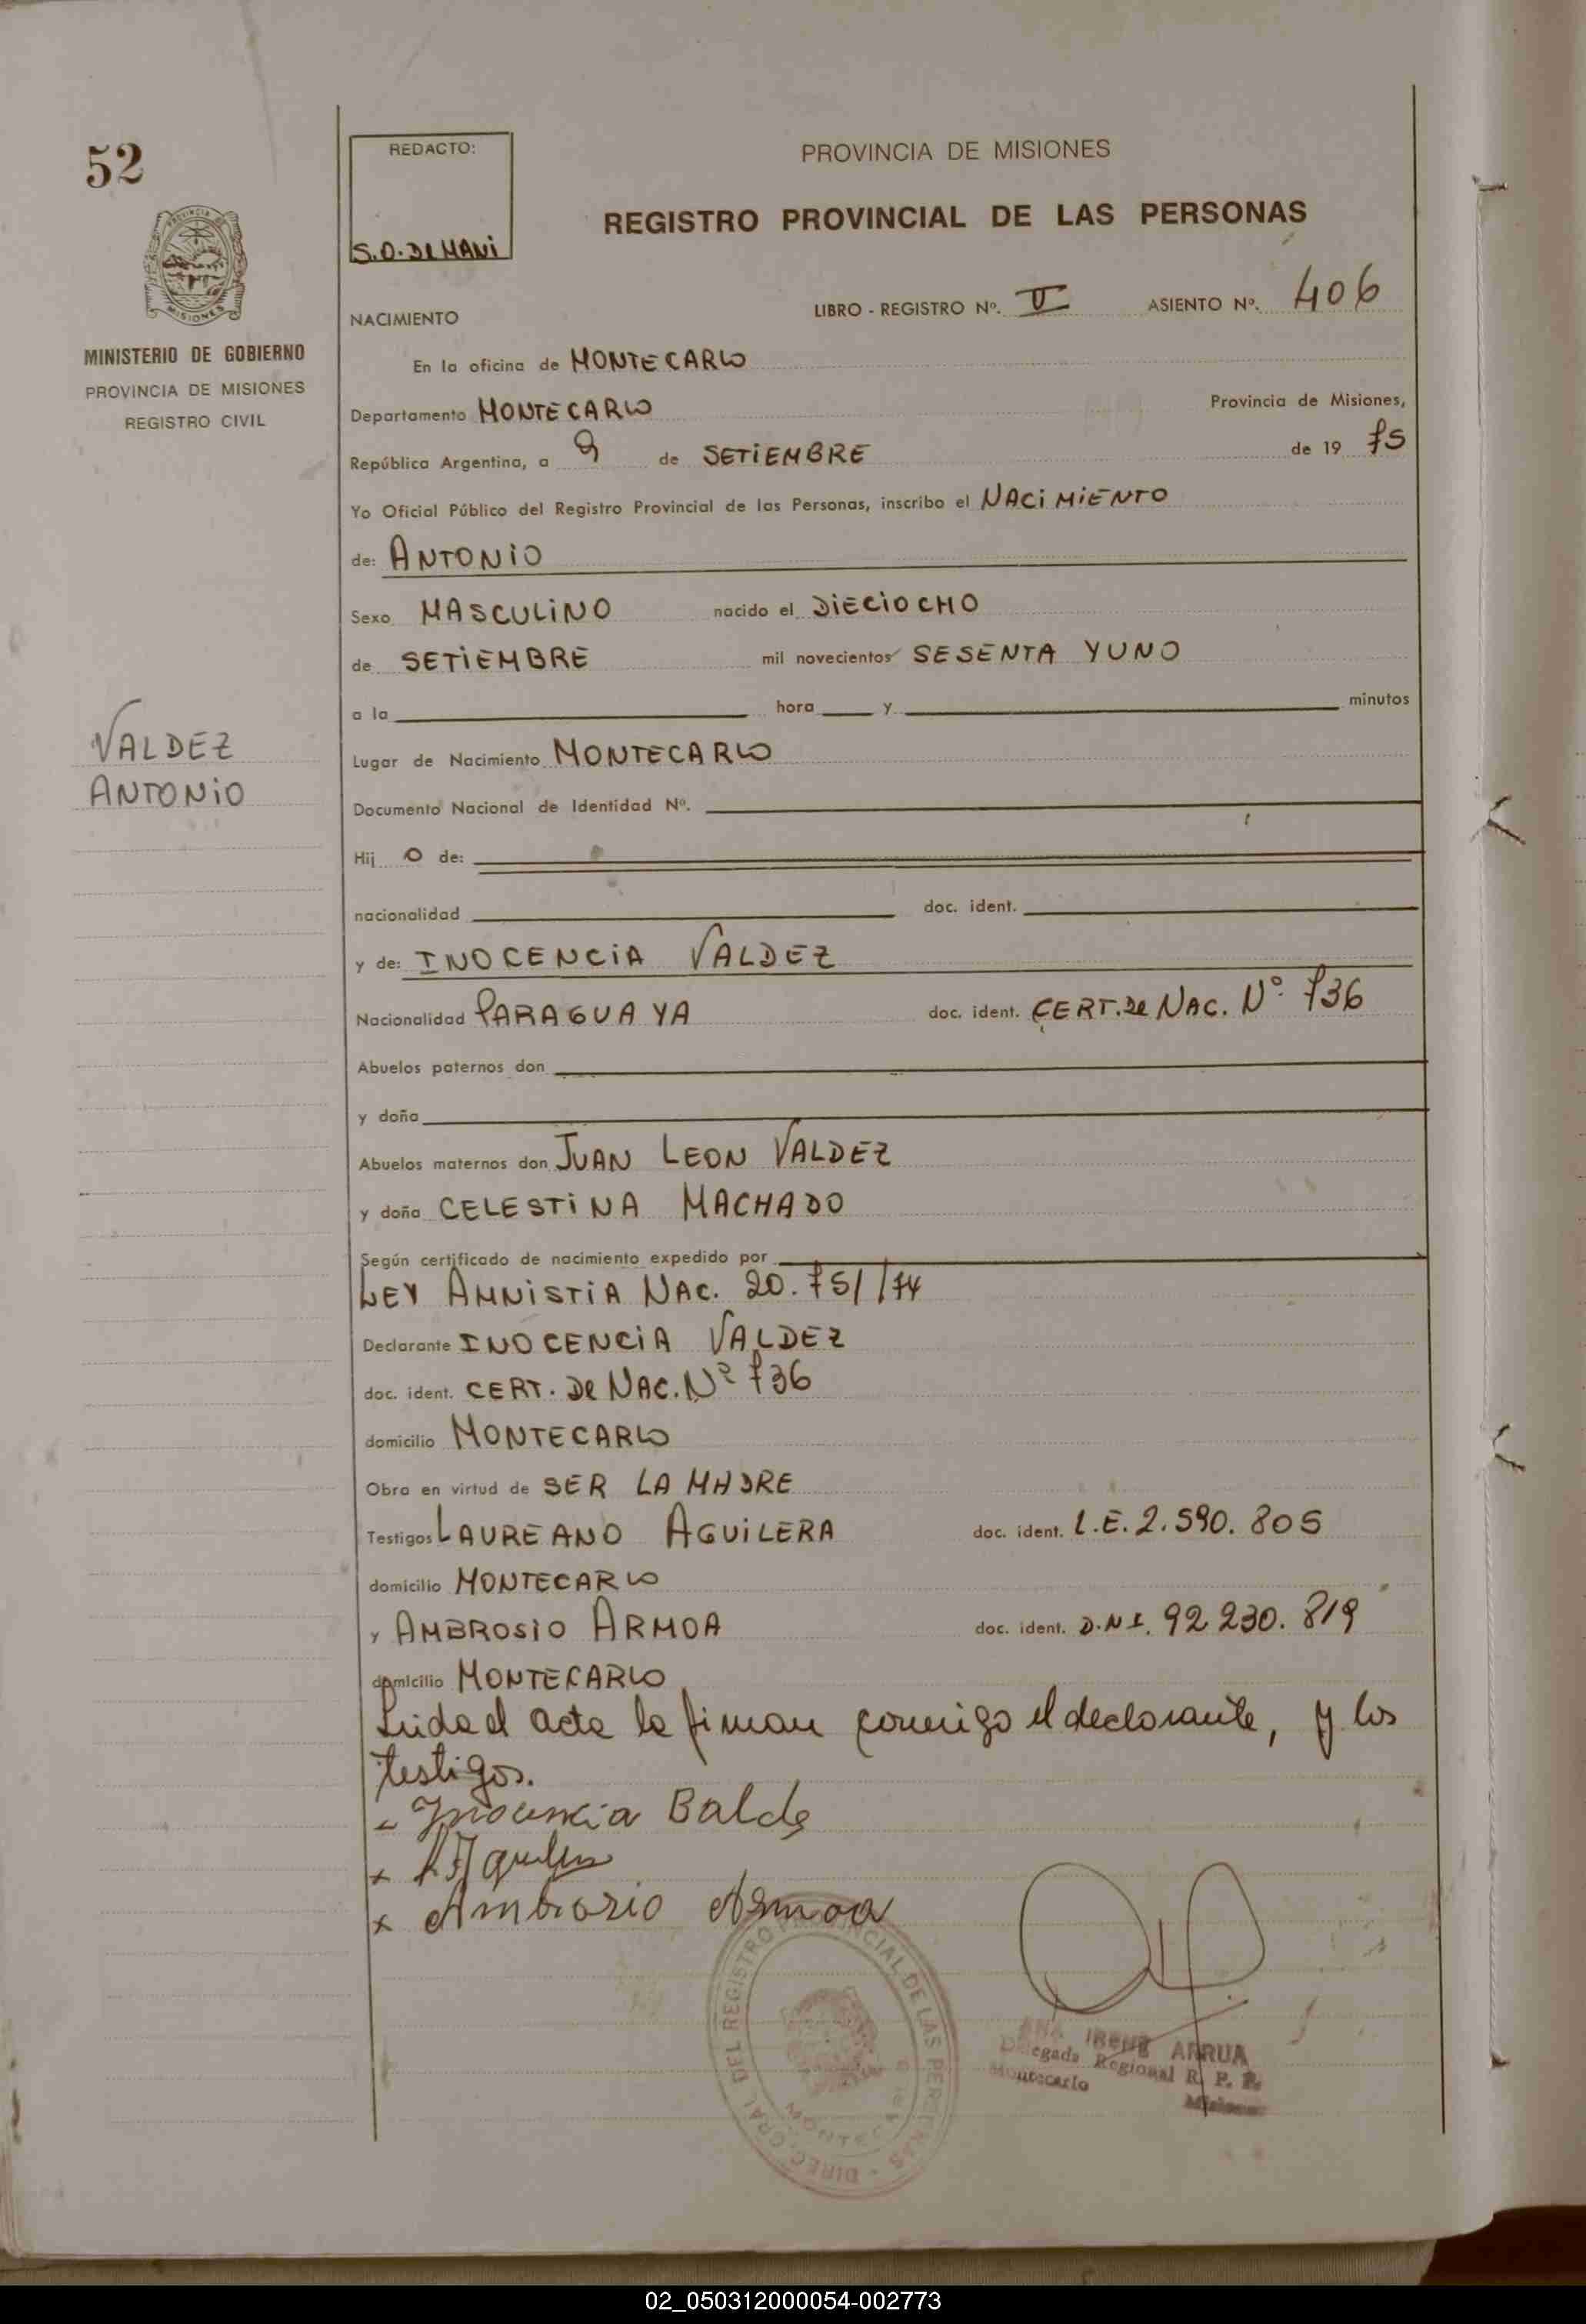 52
MINISTERIO DE GOBIERNO
PROVINCIA DE MISIONES
REGISTRO CIVIL
VALDEZ
ANTONIO
REDACTO:
PROVINCIA DE MISIONES
REGISTRO PROVINCIAL DE LAS PERSONAS
NACIMIENTO LIBRO - REGISTRO Nº. ASIENTO Nº. 406
En la oficina de MONTECARLO
Departamento MONTECARLO Provincia de Misiones,
República Argentina, a 9 de SETIEMBRE de 19 75
Yo Oficial Público del Registro Provincial de las Personas, inscribo el NACIMIENTO
de: ANTONIO
Sexo MASCULINO nacido el DIECIOCHO
de SETIEMBRE mil novecientos SESENTA Y UNO
a la hora y minutos
Lugar de Nacimiento MONTECARLO
Documento Nacional de Identidad Nº.
Hij O de:
nacionalidad doc. ident.
y de: INOCENCIA VALDEZ
Nacionalidad PARAGUAYA doc. ident. CERT. De NAC. Nº 736
Abuelos paternos don
y doña
Abuelos maternos don JUAN LEON VALDEZ
y doña CELESTINA MACHADO
Según certificado de nacimiento expedido por
LEY AMNISTIA NAC. 20.751/74
Declarante INOCENCIA VALDEZ
doc. ident. CERT. De NAC. Nº 736
domicilio MONTECARLO
Obra en virtud de SER LA MADRE
Testigos LAUREANO AGUILERA doc. ident. L.E. 2.590.805
domicilio MONTECARLO
y AMBROSIO ARMOA doc. ident. D.N.I. 92 230.819
domicilio MONTECARLO
Leida el acta la firman conmigo el declarante, y los
testigos.
Inocencia Balde
Ambrosio Armoa
DIREC ORAL DEL REGISTRO PROVINCIAL DE LAS PERSONAS
MONTECARLO
ANA IRENE ARRUA
Delegada Regional R. P. P.
Montecarlo Misiones
02_050312000054-002773